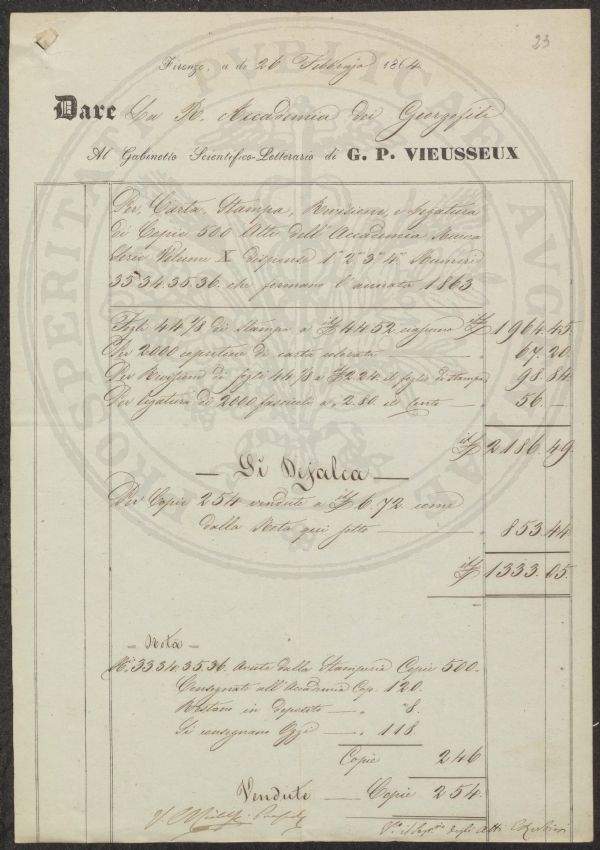 23
Firenze, a dì 26 Febbrajo 1864.
Dare La R. Accademia dei Georgofili
Al Gabinetto Scientifico-Letterario di G. P. VIEUSSEUX
Per Carta, Stampa, Revisione, e legatura
di Copie 500 Atti dell'Accademia Nuova
Serie Volume X dispense 1ª 2ª 3ª 4ª Numeri
35 34. 35. 36. che formano l'annata 1863
Fogli 44 7/8 di Stampa a 44 52 ciascuno 1964. 45.
Per 2000 copertine di carta colorata — " 67. 20.
Per Revisione di fogli 44 7/8 a 2.24. il foglio di stampa 98. 84
Per legatura di 2000 fascicoli a 2. 80. il Cento — " 56. —
2186. 49.
— Si Defalca —
Per Copie 254 vendute a 6. 72. come
dalla Nota qui sotto — 853. 44
1333. 05.
— Nota —
N.i 33 34. 35. 36. Avute dalla Stamperia Copie 500.
Consegnate all'Accademia Cop. 120.
Restano in deposito — " 8.
Si consegnano Oggi — " 118.
Copie 246
Vendute — Copie 254.
V.o il Seg.rio degli Atti
PROSPERITATI PUBLICAE AUGENDAE